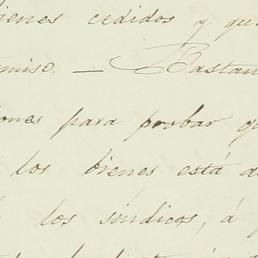 bienes cedidos y qu
miso. — Bastan
ones para probar q
los bienes está a
los síndicos, á